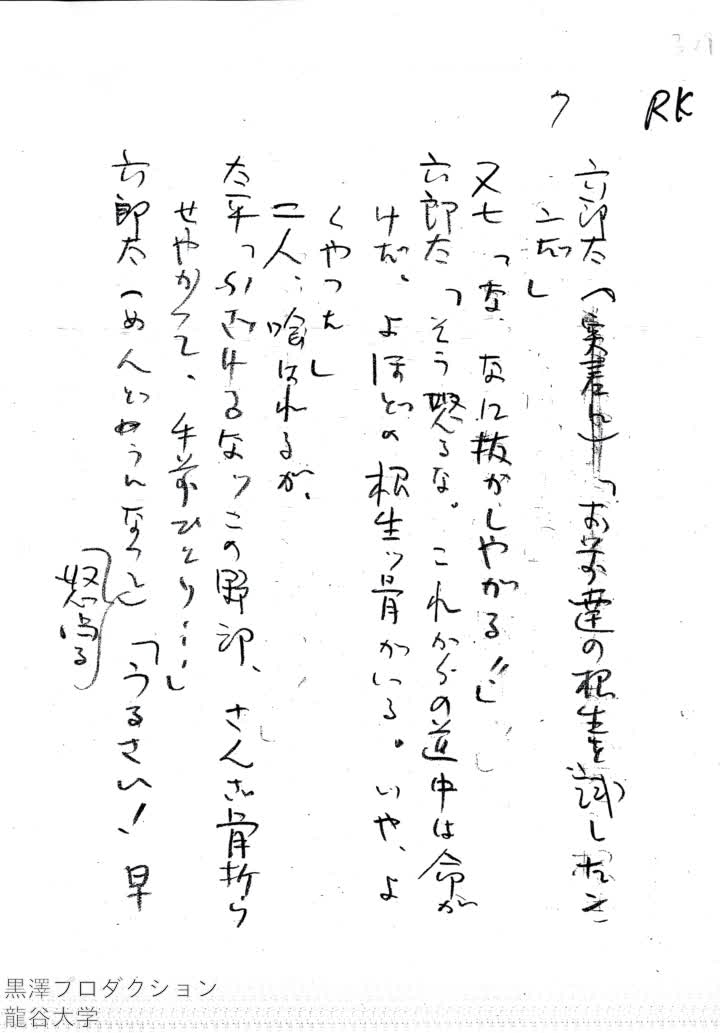 RK
7
六郎太「お前達の根生を試したまで
だ」
又七「な、なに抜かしやがる!!」
六郎太「そう怒るな。これからの道中は命が
けだ。よほどの根生ッ骨がいる。いや、よ
くやった」
二人、喰はれるが、
太平「ふざけるなッこの野郎、さんざ骨折ら
せやがって、手前ひとり……」
六郎太(めんどうになって)「うるさい! 早
怒鳴る
黒澤プロダクション
龍谷大学